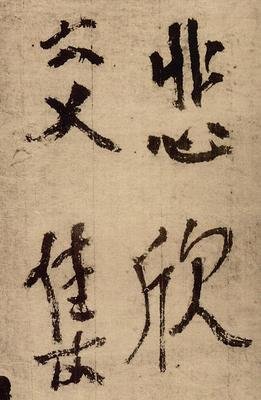 悲欣
交集